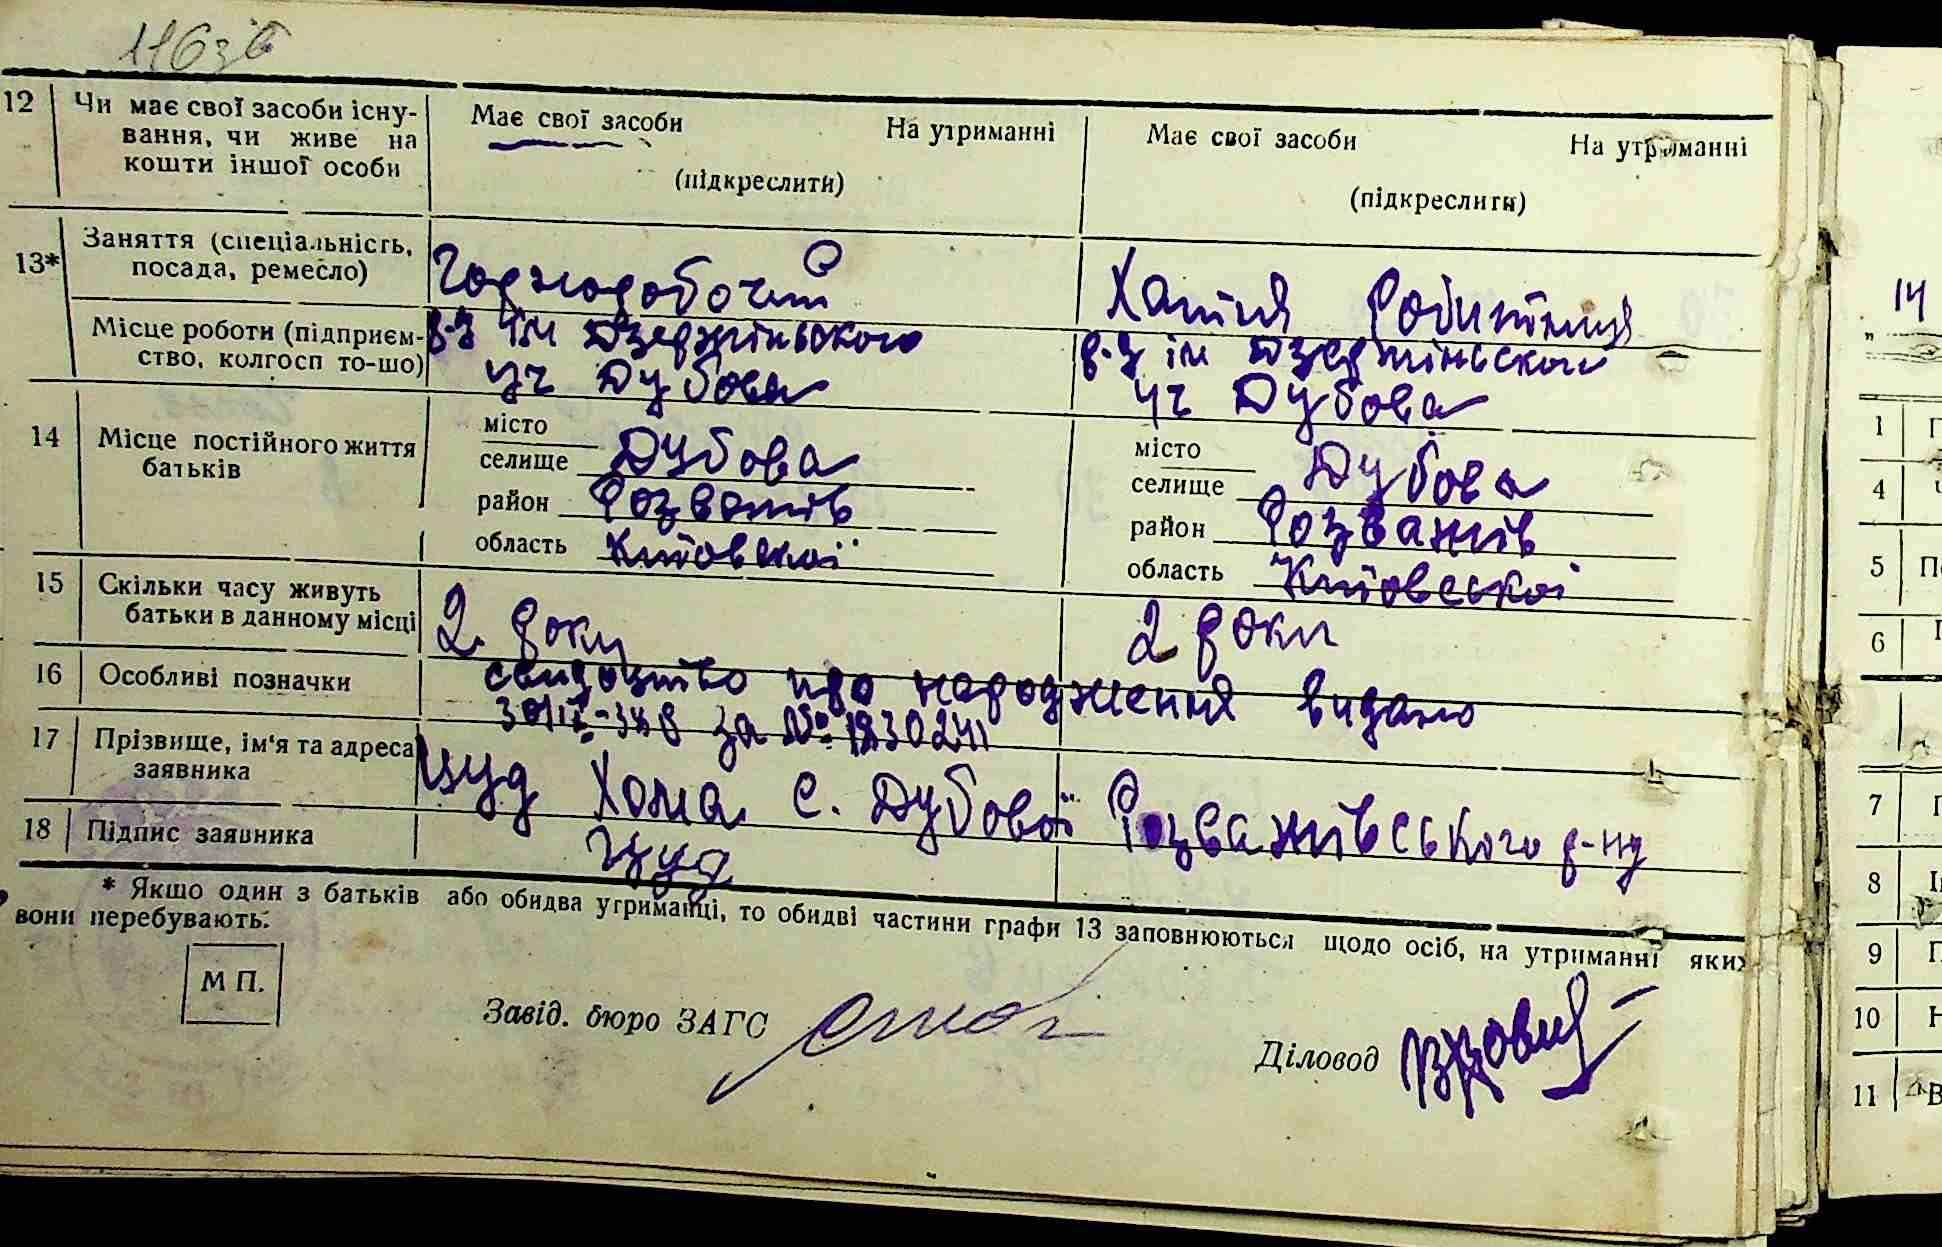 12 Чи має свої засоби існу-
вання, чи живе на
кошти іншої особи
Має свої засоби На утриманні
(підкреслити)
Має свої засоби На утриманні
(підкреслити)
13* Заняття (спеціальність,
посада, ремесло)
Чорноробочий
Хатня робітниця
Місце роботи (підприєм-
ство, колгосп то-що)
р-з ім Дзержінського
уч Дубова
р-з ім Дзержінського
уч Дубова
14 Місце постійного життя
батьків
місто
селище Дубова
район Розважів
область Київської
місто
селище Дубова
район Розважів
область Київської
15 Скільки часу живуть
батьки в данному місці
2 роки
2 роки
16 Особливі позначки
свидоцтво про народження видано
за №
17 Прізвище, ім'я та адреса
заявника
Цуд Хома с. Дубової Розважівського р-ну
18 Підпис заявника
Цуд
* Якщо один з батьків або обидва утриманці, то обидві частини графи 13 заповнюються щодо осіб, на утриманні яких
вони перебувають.
М П.
Завід. бюро ЗАГС
Діловод
14
1
4
5
6
7
8
9
10
11